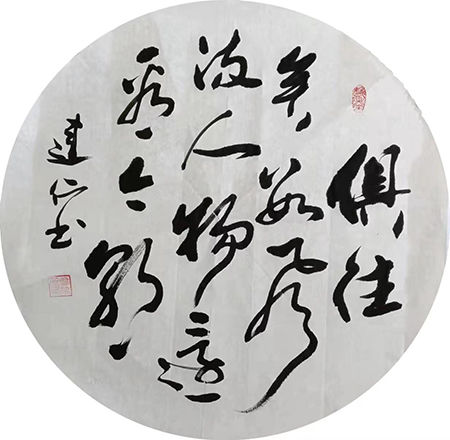 俱往
矣数风
流人物还
看今朝
书